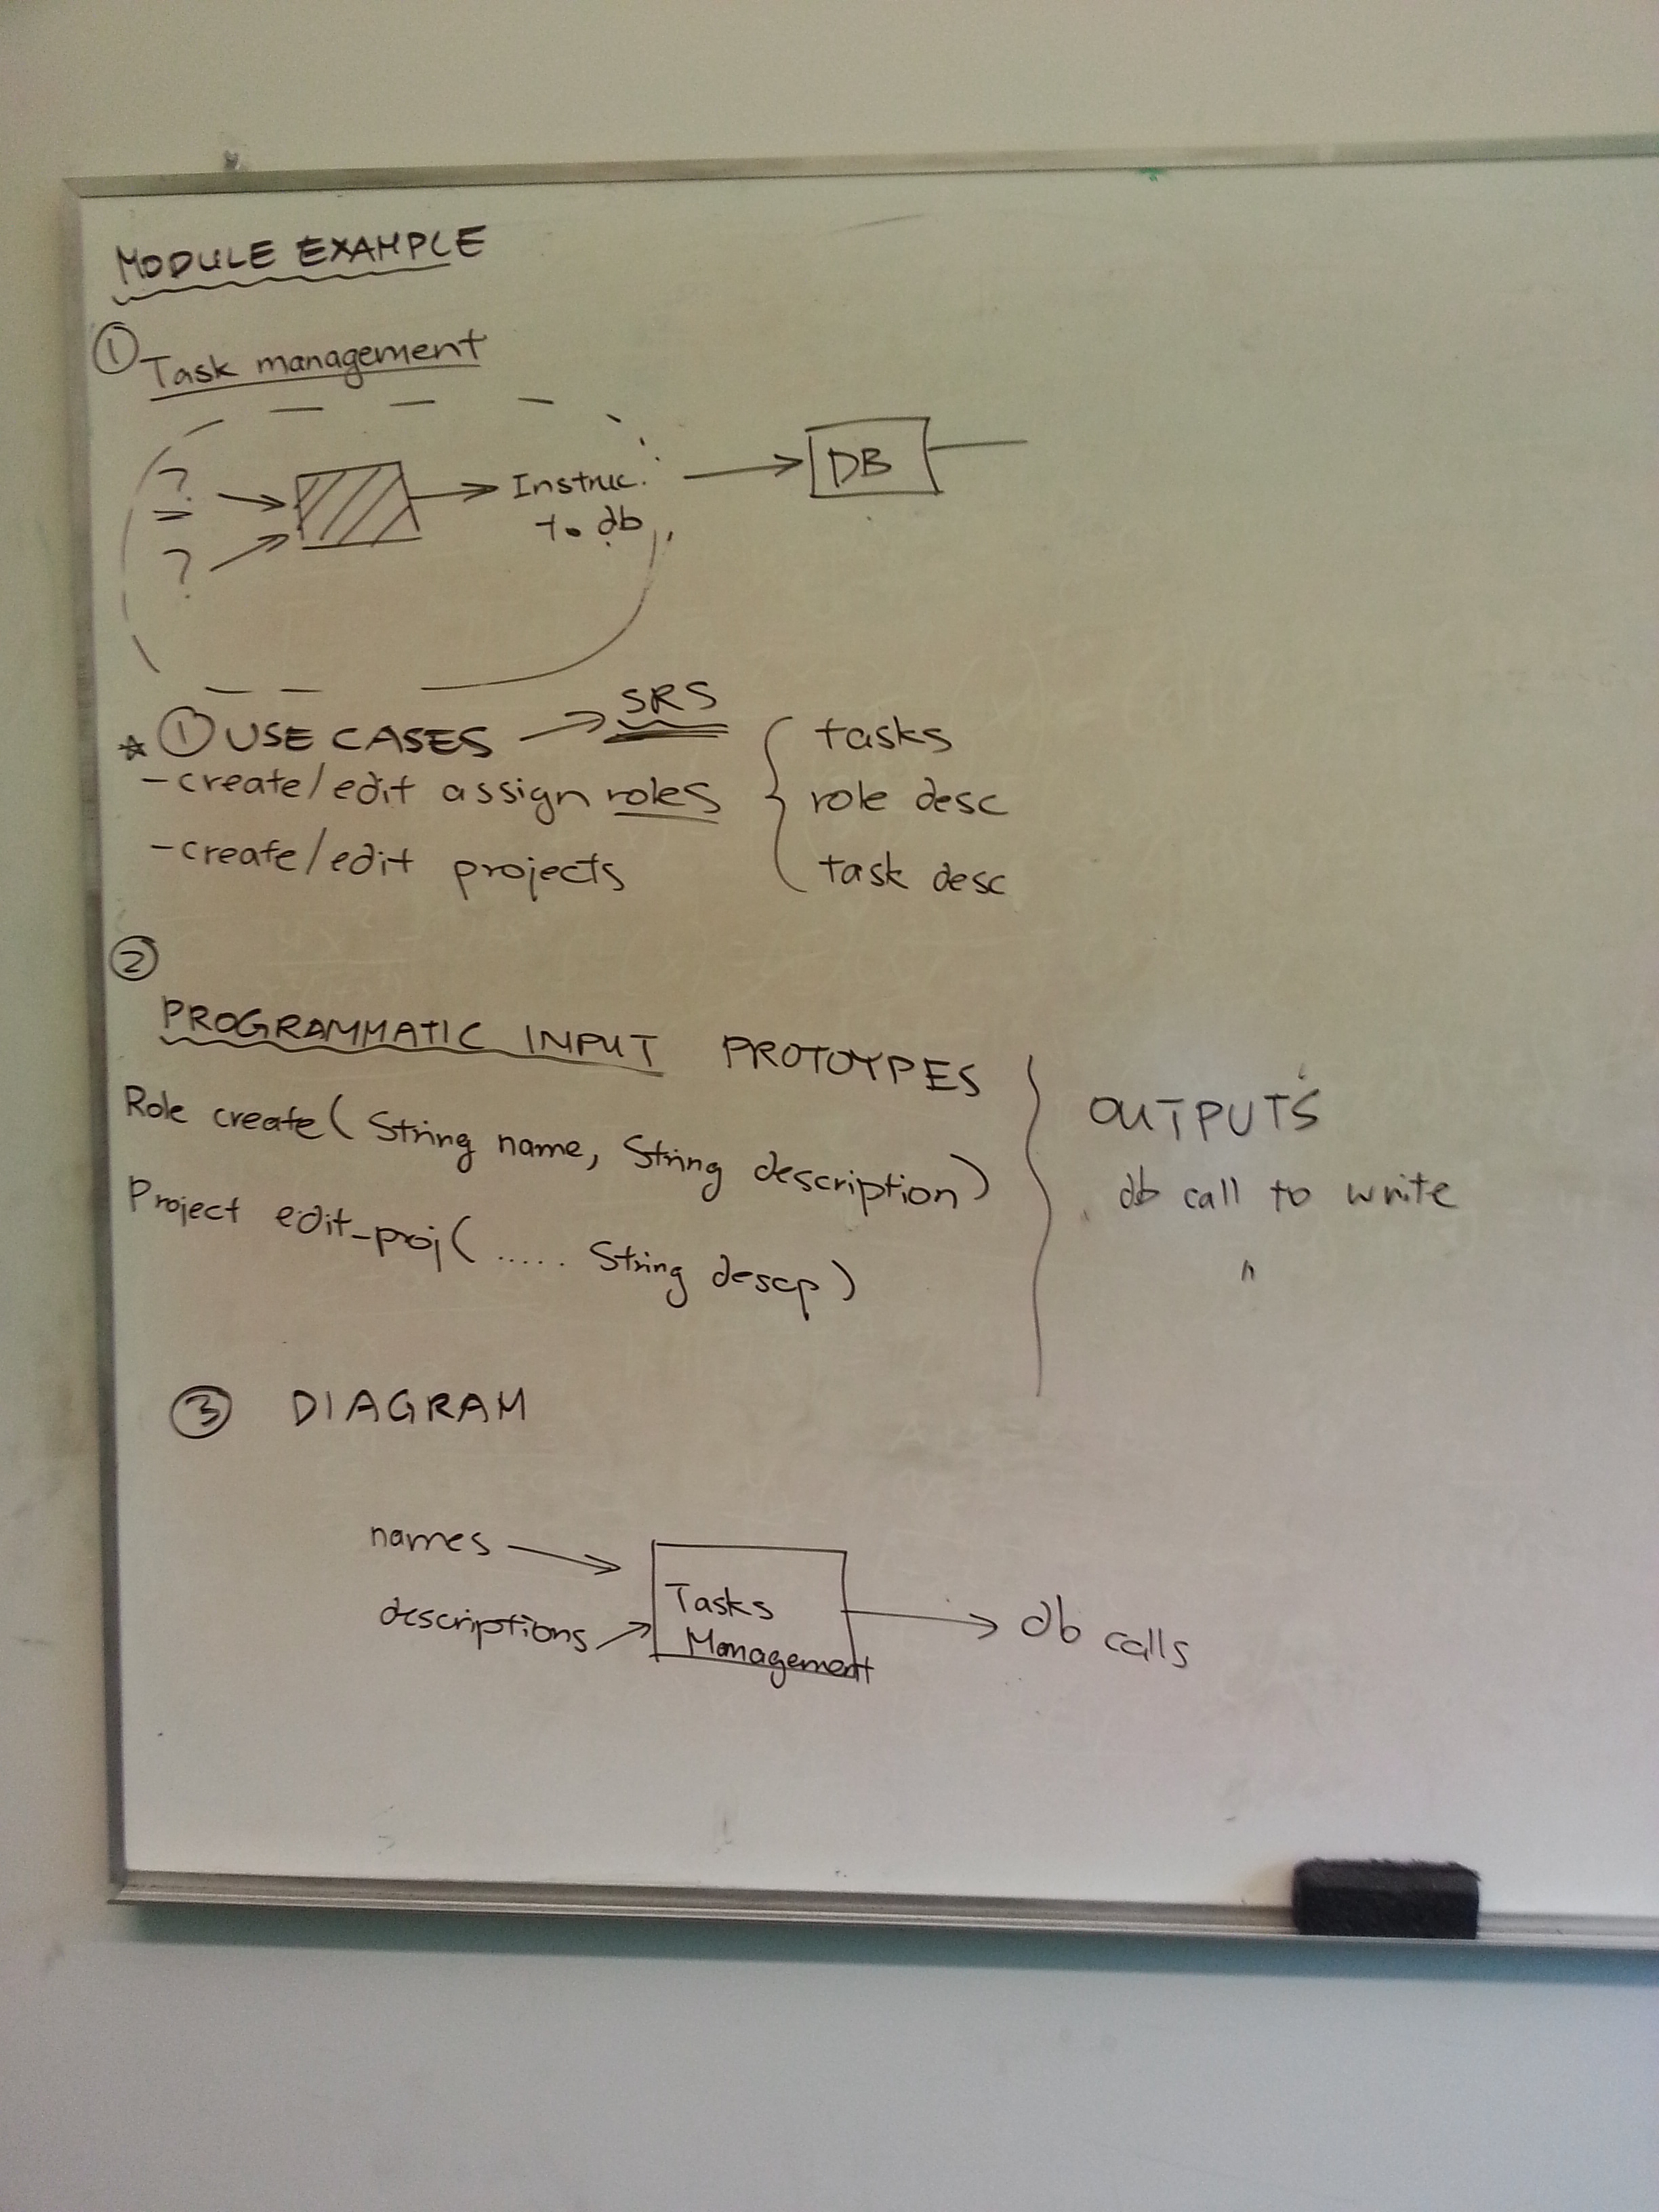 MODULE EXAMPLE
① Task management
?
?
Instruc.
to db
DB
① USE CASES → SRS
- create/edit assign roles
- create/edit projects
tasks
role desc
task desc
②
PROGRAMMATIC INPUT PROTOTYPES
Role create( String name, String description)
Project edit_proj( ..... String descp)
OUTPUTS
db call to write
"
③ DIAGRAM
names
descriptions
Tasks
Management
db calls